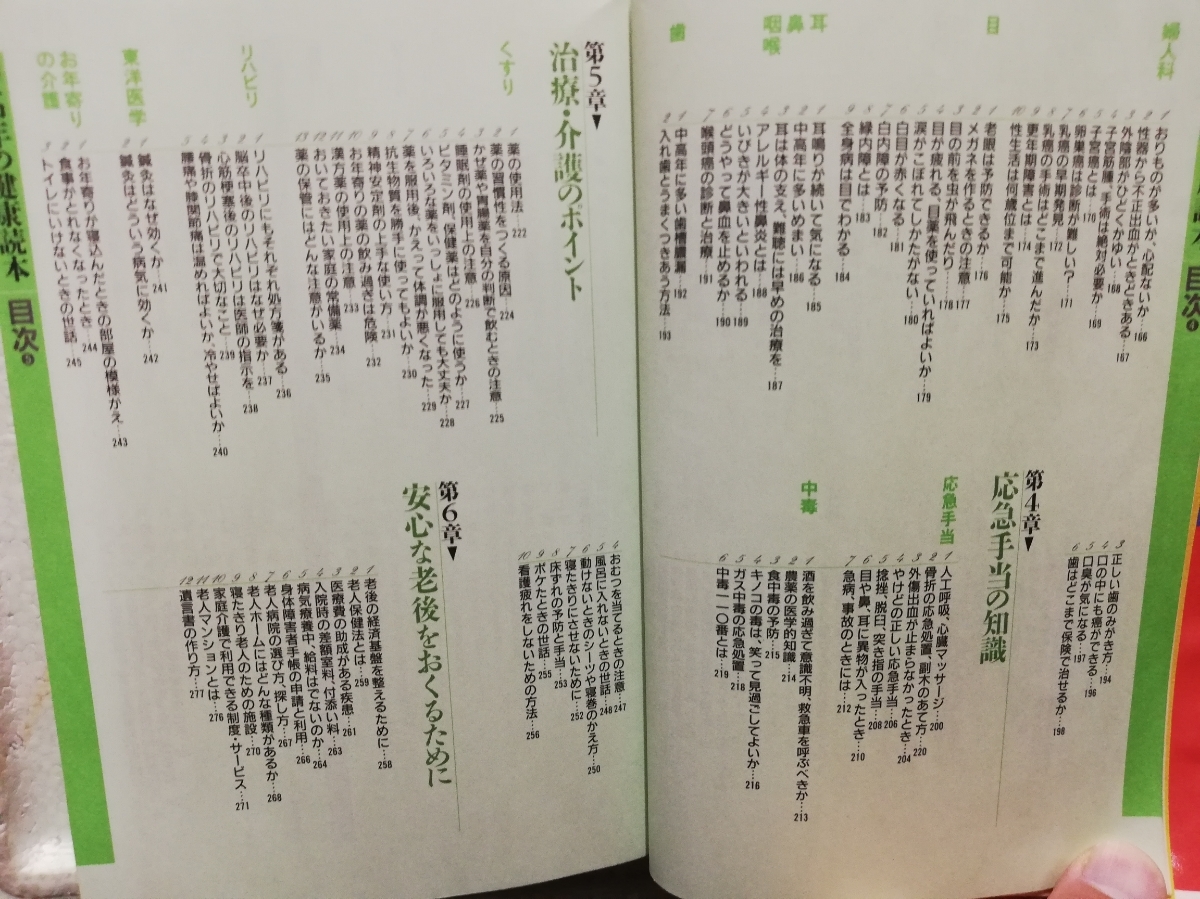 目次❹
婦人科
1 おりものが多いか、心配ないか…166
2 性器から不正出血がときどきある…167
3 外陰部がひどくかゆい…168
4 子宮筋腫、手術は絶対必要か…169
5 子宮癌とは…170
6 卵巣癌は診断が難しい？…171
7 乳癌の早期発見…172
8 乳癌の手術はどこまで進んだか…173
9 更年期障害とは…174
10 性生活は何歳位まで可能か…175
目
1 老眼は予防できるか…176
2 メガネを作るときの注意…177
3 目の前を虫が飛んだり…178
4 目が疲れる、目薬を使っていればよいか…179
5 涙がこぼれてしかたがない…180
6 白目が赤くなる…181
7 白内障の予防…182
8 緑内障とは…183
9 全身病は目でわかる…184
耳 鼻 咽喉
1 耳鳴りが続いて気になる…185
2 中高年に多いめまい…186
3 耳は体の支え、難聴には早めの治療を…187
4 アレルギー性鼻炎とは…188
5 いびきが大きいといわれる…189
6 どうやって鼻血を止めるか…190
7 喉頭癌の診断と治療…191
歯
1 中高年に多い歯槽膿漏…192
2 入れ歯とうまくつきあう方法…193
3 正しい歯のみがき方…194
4 口の中にも癌ができる…196
5 口臭が気になる…197
6 歯はどこまで保険で治せるか…198
第4章▼
応急手当の知識
応急手当
1 人工呼吸、心臓マッサージ…200
2 骨折の応急処置、副木のあて方…220
3 外傷出血が止まらなかったとき…204
4 やけどの正しい応急手当…206
5 捻挫、脱臼、突き指の手当…208
6 目や鼻、耳に異物が入ったとき…210
7 急病、事故のときには…212
中毒
1 酒を飲み過ぎて意識不明、救急車を呼ぶべきか…213
2 農薬の医学的知識…214
3 食中毒の予防…215
4 キノコの毒は、笑って見過ごしてよいか…216
5 ガス中毒の応急処置…218
6 中毒一一〇番とは…219
第5章▼
治療・介護のポイント
くすり
1 薬の使用法…222
2 薬の習慣性をつくる原因…224
3 かぜ薬や胃腸薬を自分の判断で飲むときの注意…225
4 睡眠剤の使用上の注意…226
5 ビタミン剤、保健薬はどのように使うか…227
6 いろいろな薬をいっしょに服用しても大丈夫か…228
7 薬を服用後、かえって体調が悪くなった…229
8 抗生物質を勝手に使ってもよいか…230
9 精神安定剤の上手な使い方…231
10 お年寄りの薬の飲み過ぎは危険…232
11 漢方薬の使用上の注意…233
12 おいておきたい家庭の常備薬…234
13 薬の保管にはどんな注意がいるか…235
リハビリ
1 リハビリにもそれぞれ処方箋がある…236
2 脳卒中後のリハビリはなぜ必要か…237
3 心筋梗塞後のリハビリは医師の指示を…238
4 骨折のリハビリで大切なこと…239
5 腰痛や膝関節痛は温めればよいか、冷やせばよいか…240
東洋医学
1 鍼灸はなぜ効くか…241
2 鍼灸はどういう病気に効くか…242
お年寄りの介護
1 お年寄りが寝込んだときの部屋の模様がえ…243
2 食事がとれなくなったとき…244
3 トイレにいけないときの世話…245
4 おむつを当てるときの注意…247
5 風呂に入れないときの世話…248
6 動けないときのシーツや寝巻のかえ方…250
7 寝たきりにさせないために…252
8 床ずれの予防と手当…253
9 ボケたときの世話…255
10 看護疲れをしないための方法…256
第6章▼
安心な老後をおくるために
1 老後の経済基盤を整えるために…258
2 老人保健法とは…259
3 医療費の助成がある疾患…261
4 入院時の差額室料、付添い料…263
5 病気療養中、給料はでないのか…264
6 身体障害者手帳の申請と利用…266
7 老人病院の選び方、探し方…267
8 老人ホームにはどんな種類があるか…268
9 寝たきり老人のための施設…270
10 家庭介護で利用できる制度・サービス…271
11 老人マンションとは…276
12 遺言書の作り方…277
の健康読本 目次❺